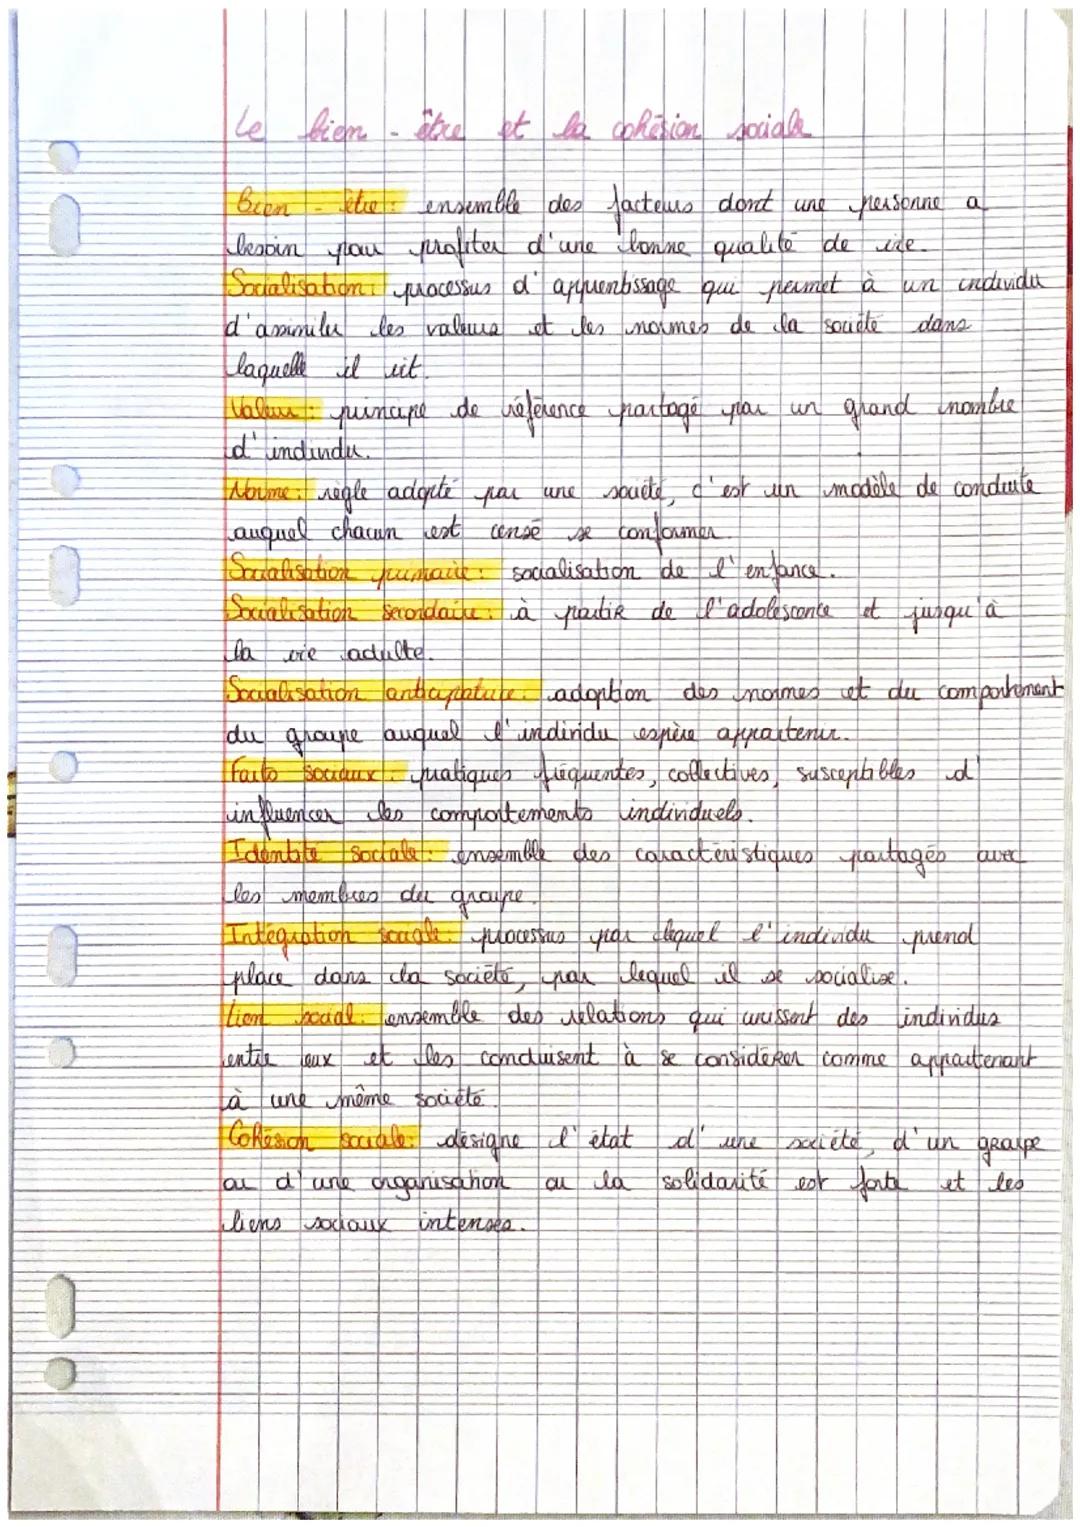 Le bien - être et la cohésion sociale
Bien - être : ensemble des facteurs dont une personne a
besoin pour profiter d'une bonne qualité de vie.
Socialisation : processus d'apprentissage qui permet à un individu
d'assimiler les valeurs et les normes de la société dans
laquelle il vit.
Valeur : principe de référence partagé par un grand nombre
d'individu.
Norme : règle adopté par une société, c'est un modèle de conduite
auquel chacun est censé se conformer.
Socialisation primaire : socialisation de l'enfance.
Socialisation secondaire : à partir de l'adolescence et jusqu'à
la vie adulte.
Socialisation anticipatrice : adoption des normes et du comportement
du groupe auquel l'individu espère appartenir.
Faits sociaux : pratiques fréquentes, collectives, susceptibles d'
influencer les comportements individuels.
Identité sociale : ensemble des caractéristiques partagés avec
les membres du groupe.
Intégration sociale : processus par lequel l'individu prend
place dans la société, par lequel il se socialise.
Lien social : ensemble des relations qui unissent des individus
entre eux et les conduisent à se considérer comme appartenant
à une même société.
Cohésion sociale : désigne l'état d'une société, d'un groupe
ou d'une organisation ou la solidarité est forte et les
liens sociaux intenses.